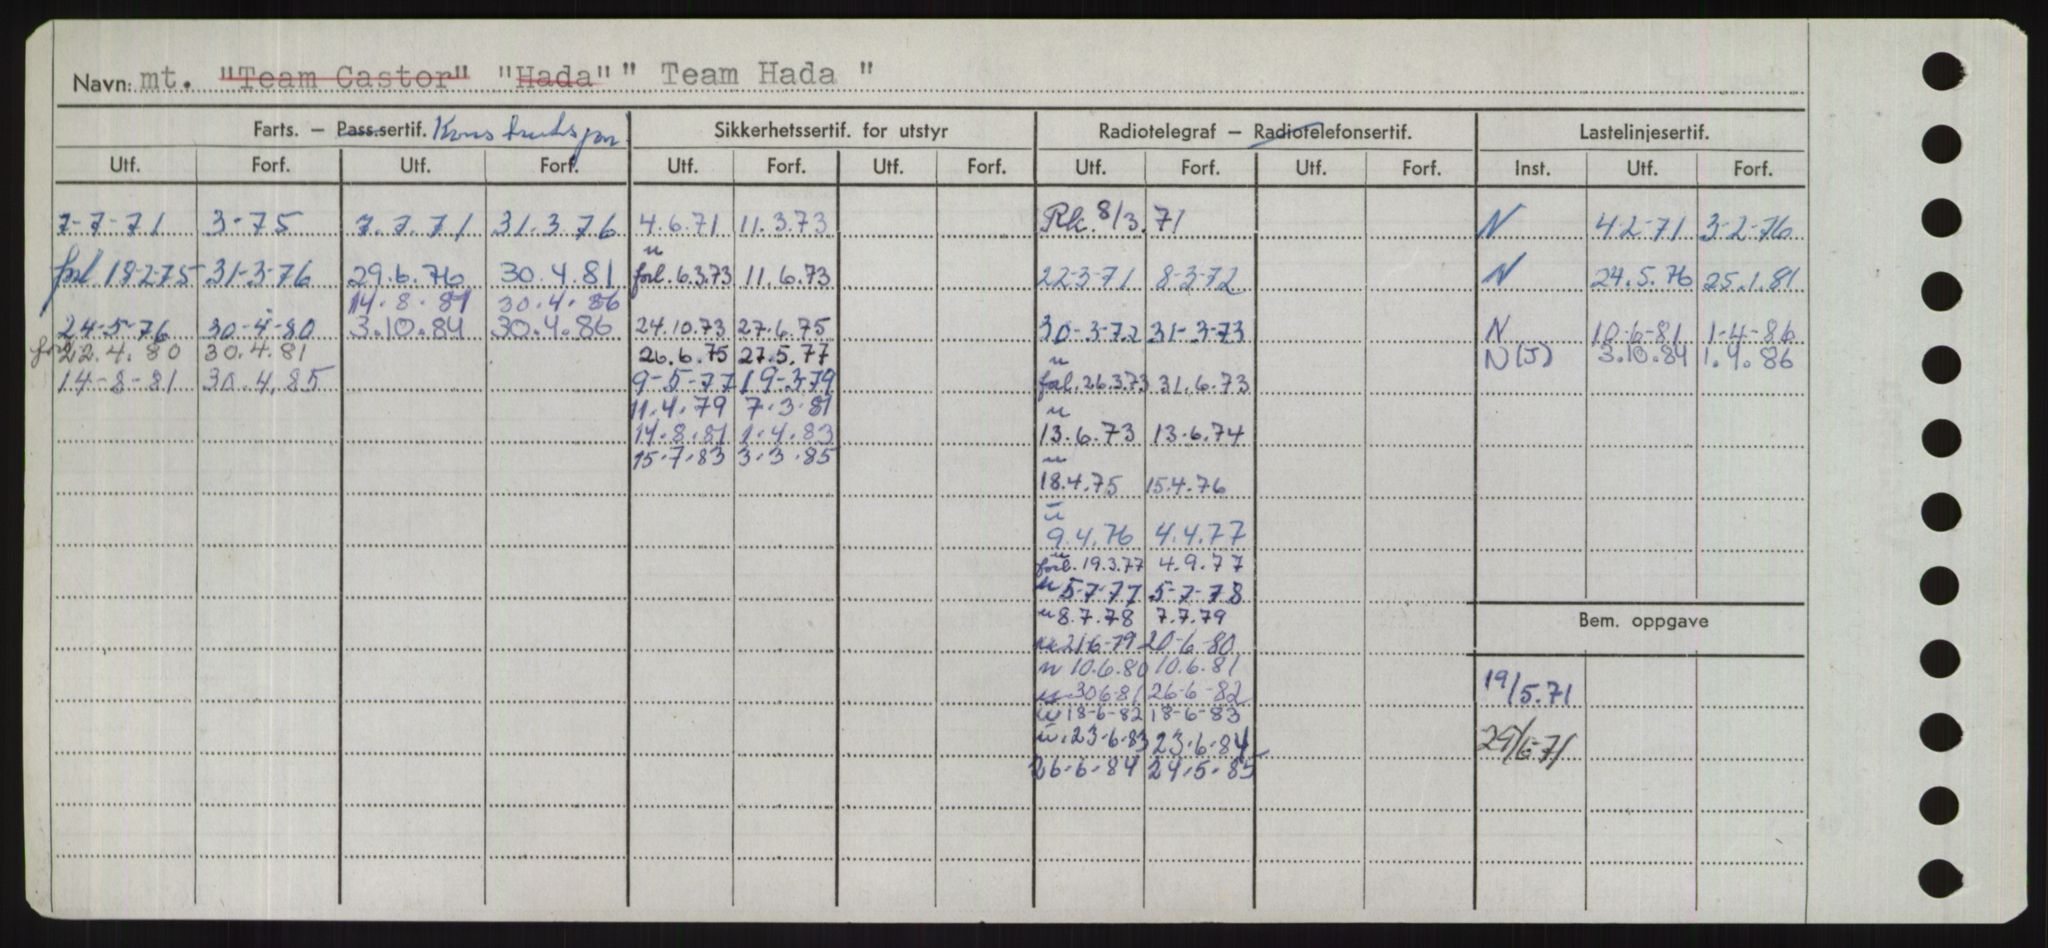 Navn: mt. "Team Castor" "Hada" " Team Hada "
Farts. — Pass.sertif. Sikkerhetssertif. for utstyr Radiotelegraf — Radiotelefonsertif. Lastelinjesertif.
Utf. Forf. Utf. Forf. Utf. Forf. Utf. Forf. Utf. Forf. Utf. Forf. Inst. Utf. Forf.
7-7-71 3-75 7.7.71 31.3.76 4.6.71 11.3.73 Rk. 8/3.71 N 4-2-71 3-2-76
u
forl. 18-2-75 31-3-76 29.6.76 30.4.81 forl. 6.3.73 11.6.73 22-3-71 8-3-72 N 24.5.76 25.1.81
14.8.81 30.4.86
24-5-76 30-4-80 3.10.84 30.4.86 24.10.73 27.6.75 30-3-72 31-3-73 N 10-6-81 1-4-86
22.4.80 30.4.81 26.6.75 27.5.77 u N(J) 3.10.84 1.4.86
14-8-81 30.4.85 9-5-77 19-3-79 forl. 26.3.73 31.6.73
11.4.79 7.3.81 u
14.8.81 1.4.83 13.6.73 13.6.74
15.7.83 3.3.85 u
18.4.75 15.4.76
u
9.4.76 4.4.77
u
forl. 19.3.77 4.9.77
u 5-7-77 5-7-78
u 8.7.78 7.7.79
Bem. oppgave
u 21-6-79 20-6-80
u 10.6.80 10.6.81
u 30-6-81 26-6-82
19/5.71
u 18-6-82 18-6-83
u. 23-6-83 23.6.84
29/6-71
26-6-84 24.5.85